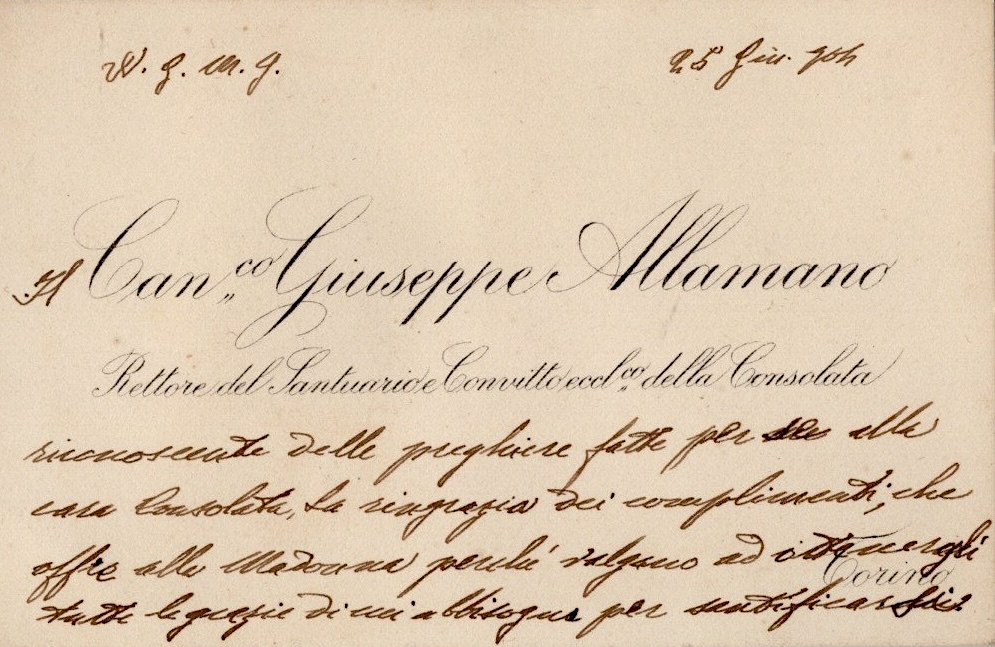 W. G. M. G. 25 Giu. 904
Il Can.co Giuseppe Allamano
Rettore del Santuario e Convitto eccl.co della Consolata
riconoscente delle preghiere fatte per alla
cara Consolata, La ringrazia dei complimenti, che
offre alla Madonna perché valgano ad ottenergli
Torino
tutte le grazie di cui abbisogna per santificarsi.